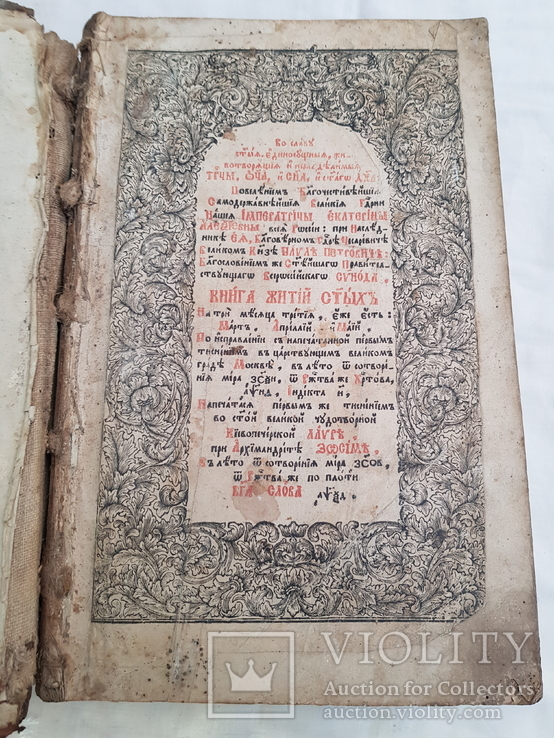 Во славу
ст҃ыѧ, є҆диносꙋщныѧ, жи-
вотворѧщїѧ и҆ нераздѣлимыѧ
трⷪ҇цы, ѻ҆ц҃а, и҆ сн҃а, и҆ ст҃агѡ дх҃а:
Повелѣнїемъ Благочестивѣйшїѧ
Самодержавнѣйшїѧ Великїѧ Гдⷭ҇рни
Нашеѧ Імператрїцы Екатерїны
Алеѯіевны всеѧ Рѡссїи: при Наслѣд-
никѣ Еѧ, Благовѣрномъ Гдⷭ҇рѣ Цесаревичѣ
Великомъ Кнѧзѣ Паѵлѣ Петровичѣ:
Благословенїемъ же Ст҃ѣйшагѡ Правитель-
ствꙋющагѡ Всерѡссїйскагѡ Сѵнода,
КНИГА ЖИТІЙ СТ҃ЫХЪ
На три мѣсѧца третїѧ, є҆же є҆сть:
Мартъ, Апрїллїй и҆ Маїй,
По и҆справленїи съ напечатанной первымъ
тисненїемъ въ царствꙋющемъ великомъ
градѣ Москвѣ, въ лѣто ѿ сотворе-
нїѧ мїра, ѿ Рж҇тва же Хрⷭ҇това,
Індїкта
Напечатасѧ первымъ же тисненїемъ
во ст҃ой великой чꙋдотворной
Кїевопечерской Лаѵрѣ,
при Архїмандрїтѣ Зѡсїмѣ,
Въ лѣто ѿ сотворенїѧ мїра
ѿ Рж҇тва же по плоти
Бг҃а Слова
VIOLITY
Auction for Collectors
auction.violity.com